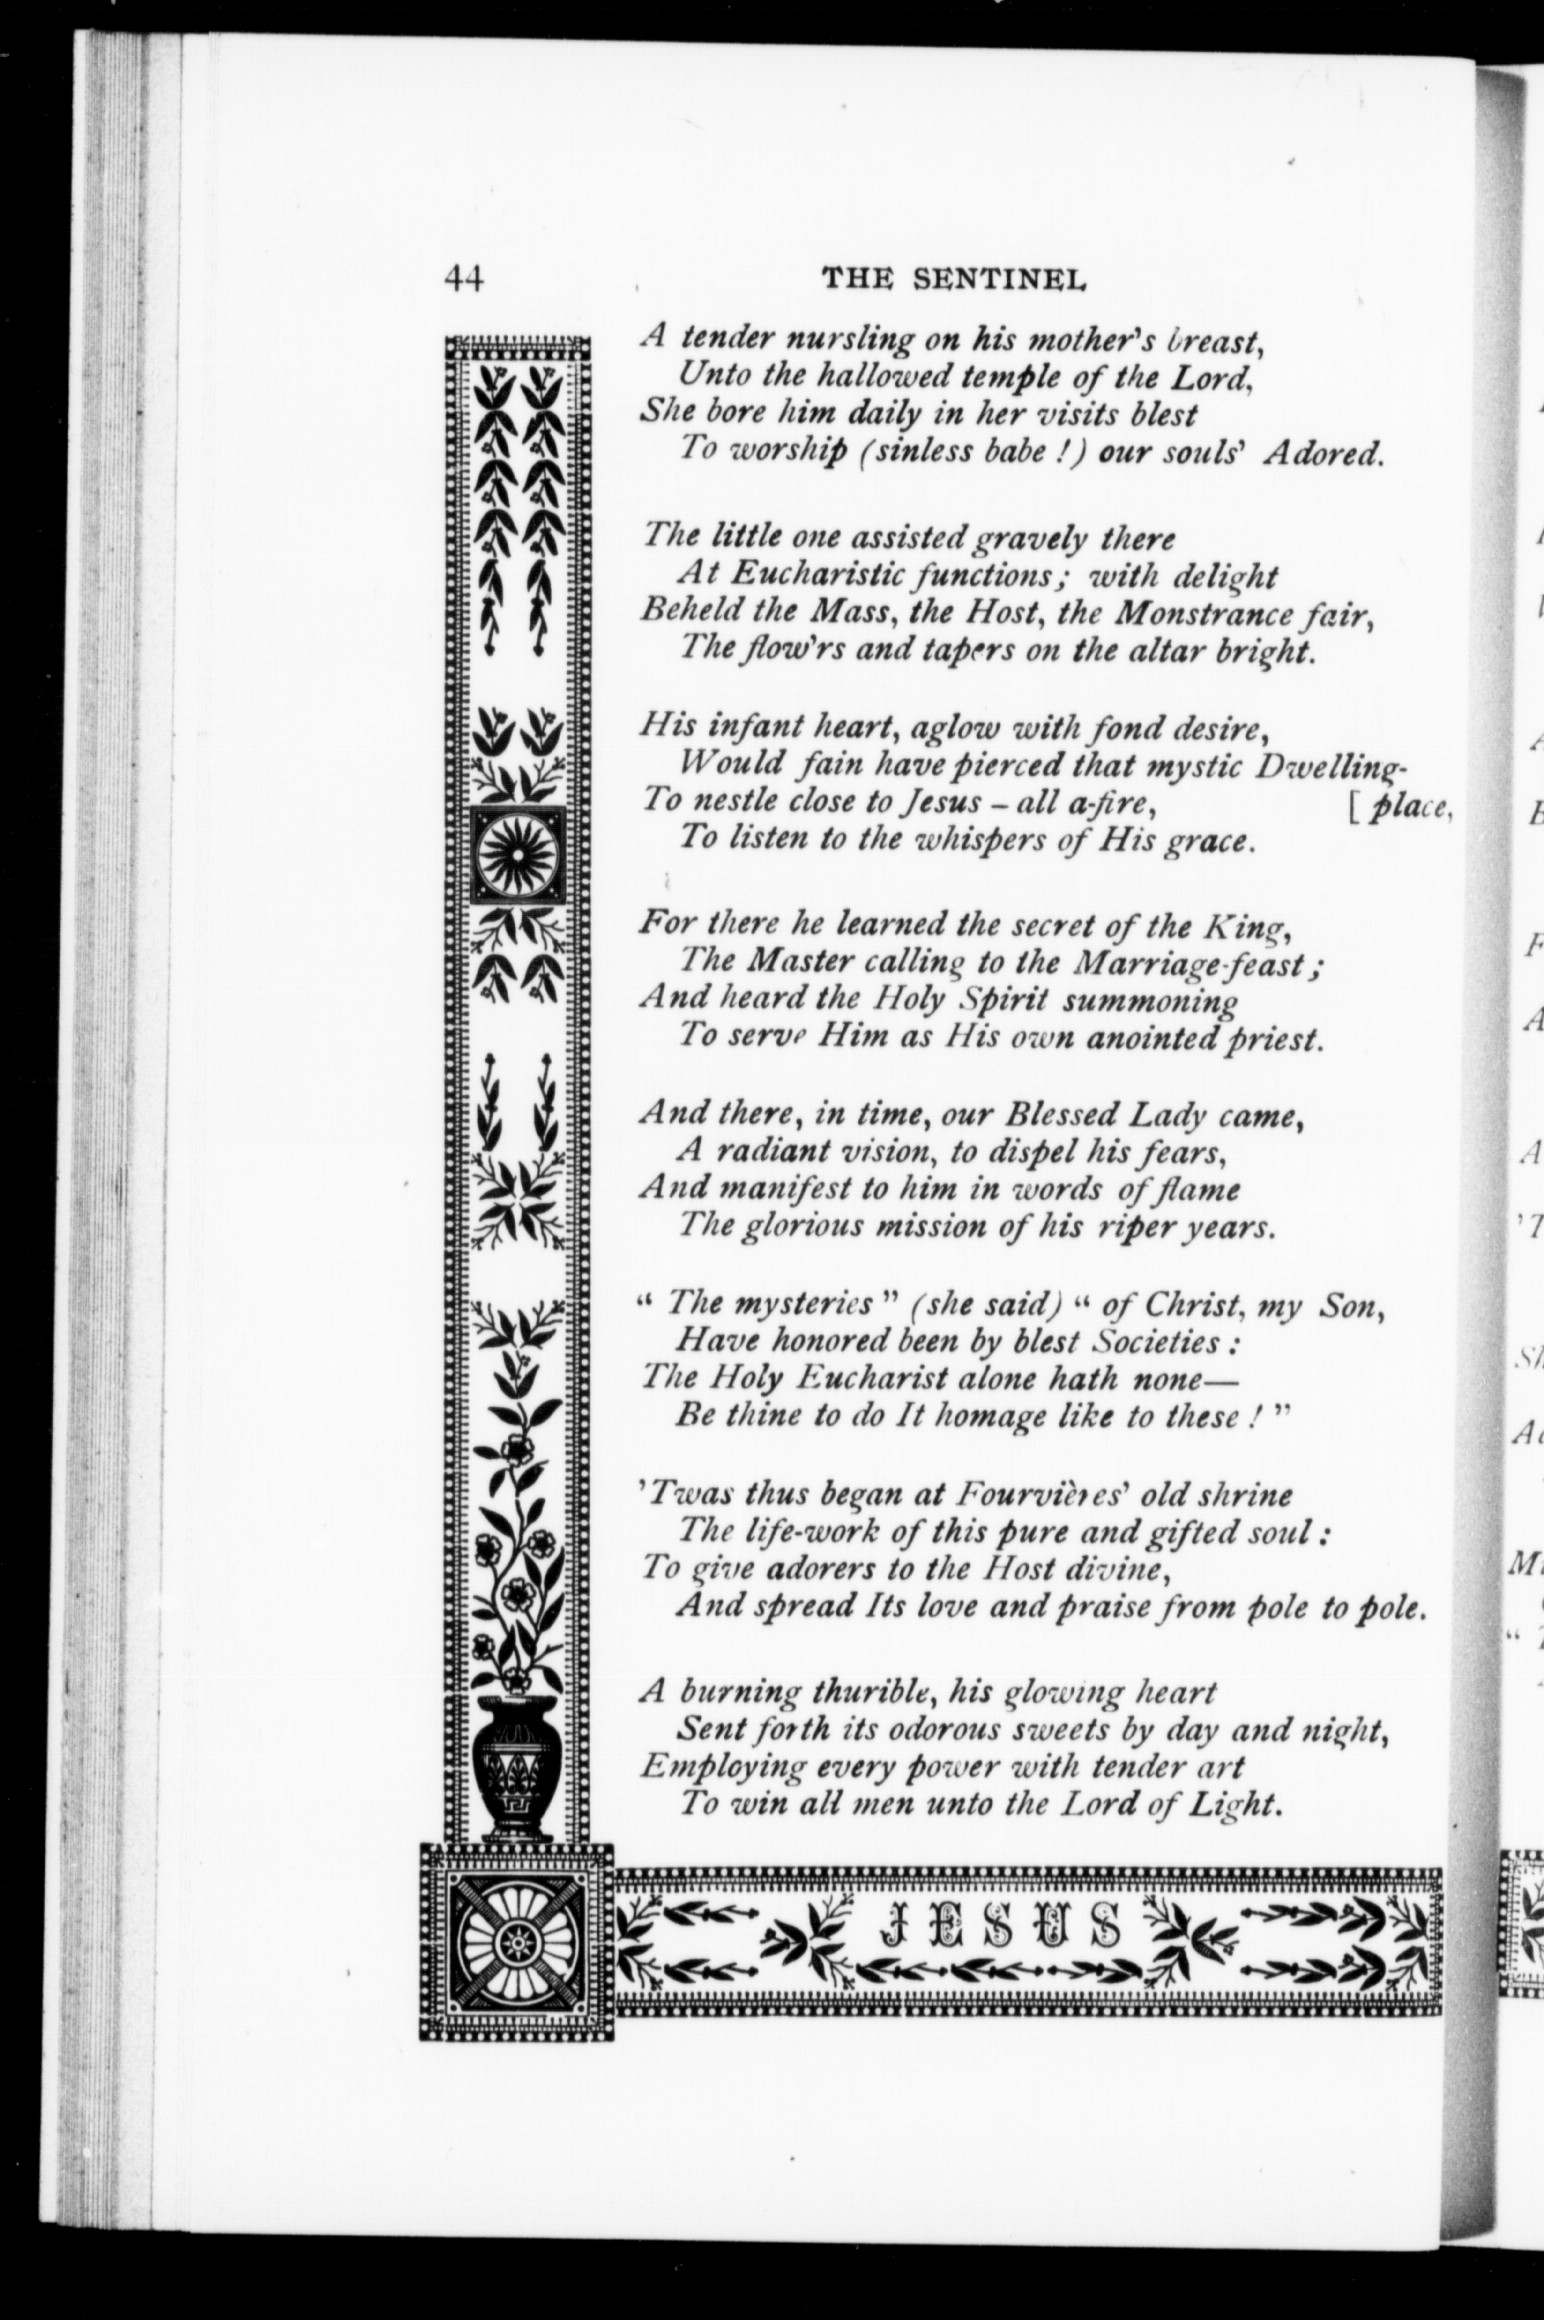 44 THE SENTINEL
A tender nursling on his mother's breast,
Unto the hallowed temple of the Lord,
She bore him daily in her visits blest
To worship (sinless babe !) our souls' Adored.
The little one assisted gravely there
At Eucharistic functions; with delight
Beheld the Mass, the Host, the Monstrance fair,
The flow'rs and tapers on the altar bright.
His infant heart, aglow with fond desire,
Would fain have pierced that mystic Dwelling-
To nestle close to Jesus – all a-fire, [ place,
To listen to the whispers of His grace.
For there he learned the secret of the King,
The Master calling to the Marriage-feast ;
And heard the Holy Spirit summoning
To serve Him as His own anointed priest.
And there, in time, our Blessed Lady came,
A radiant vision, to dispel his fears,
And manifest to him in words of flame
The glorious mission of his riper years.
“ The mysteries ” (she said) “ of Christ, my Son,
Have honored been by blest Societies :
The Holy Eucharist alone hath none—
Be thine to do It homage like to these ! ”
'Twas thus began at Fourvières' old shrine
The life-work of this pure and gifted soul :
To give adorers to the Host divine,
And spread Its love and praise from pole to pole.
A burning thurible, his glowing heart
Sent forth its odorous sweets by day and night,
Employing every power with tender art
To win all men unto the Lord of Light.
JESUS